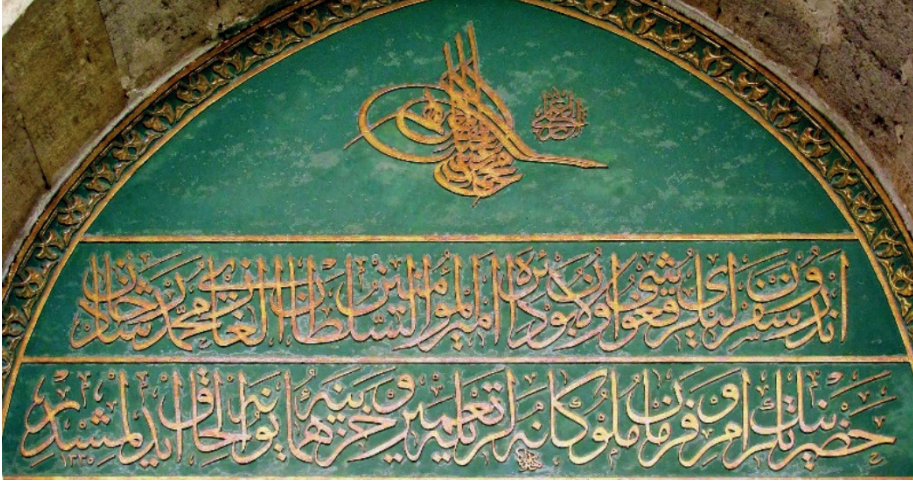 اندرون سفرلیلری قغوشی اولان بو دائره امیر المؤمنین السلطان الغازی محمد رشاد خان
حضرتلرینك امر و فرمان ملوكانه لریله تعمیر و خزینه همایونه الحاق ایدلمشدر ١٣٣٥